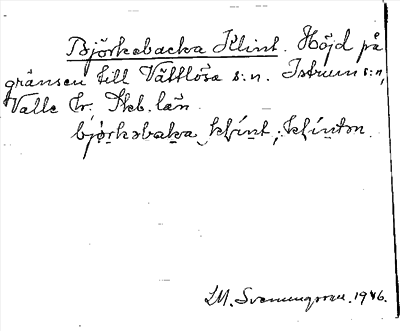 Björkebacka Klint. Höjd på
gränsen till Vättlösa s:n. Istrum s:n,
Valle hr, Skb. län
bjǫrkəbaka klint ; klintən.
LM. Svenungsson. 1946.